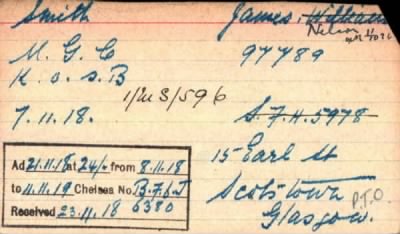 Smith James, William
Nelson
M.G.C 97789
K.o.s.B
1/MS/596
7.11.18. S.7.H.5978
15 Earl St
Scotstown
Glasgow.
P.T.O.
Ad 21.11.18 at 24/- from 8.11.18
to 11.11.19 Chelsea No. B.762.J
Received 23.11.18 6380